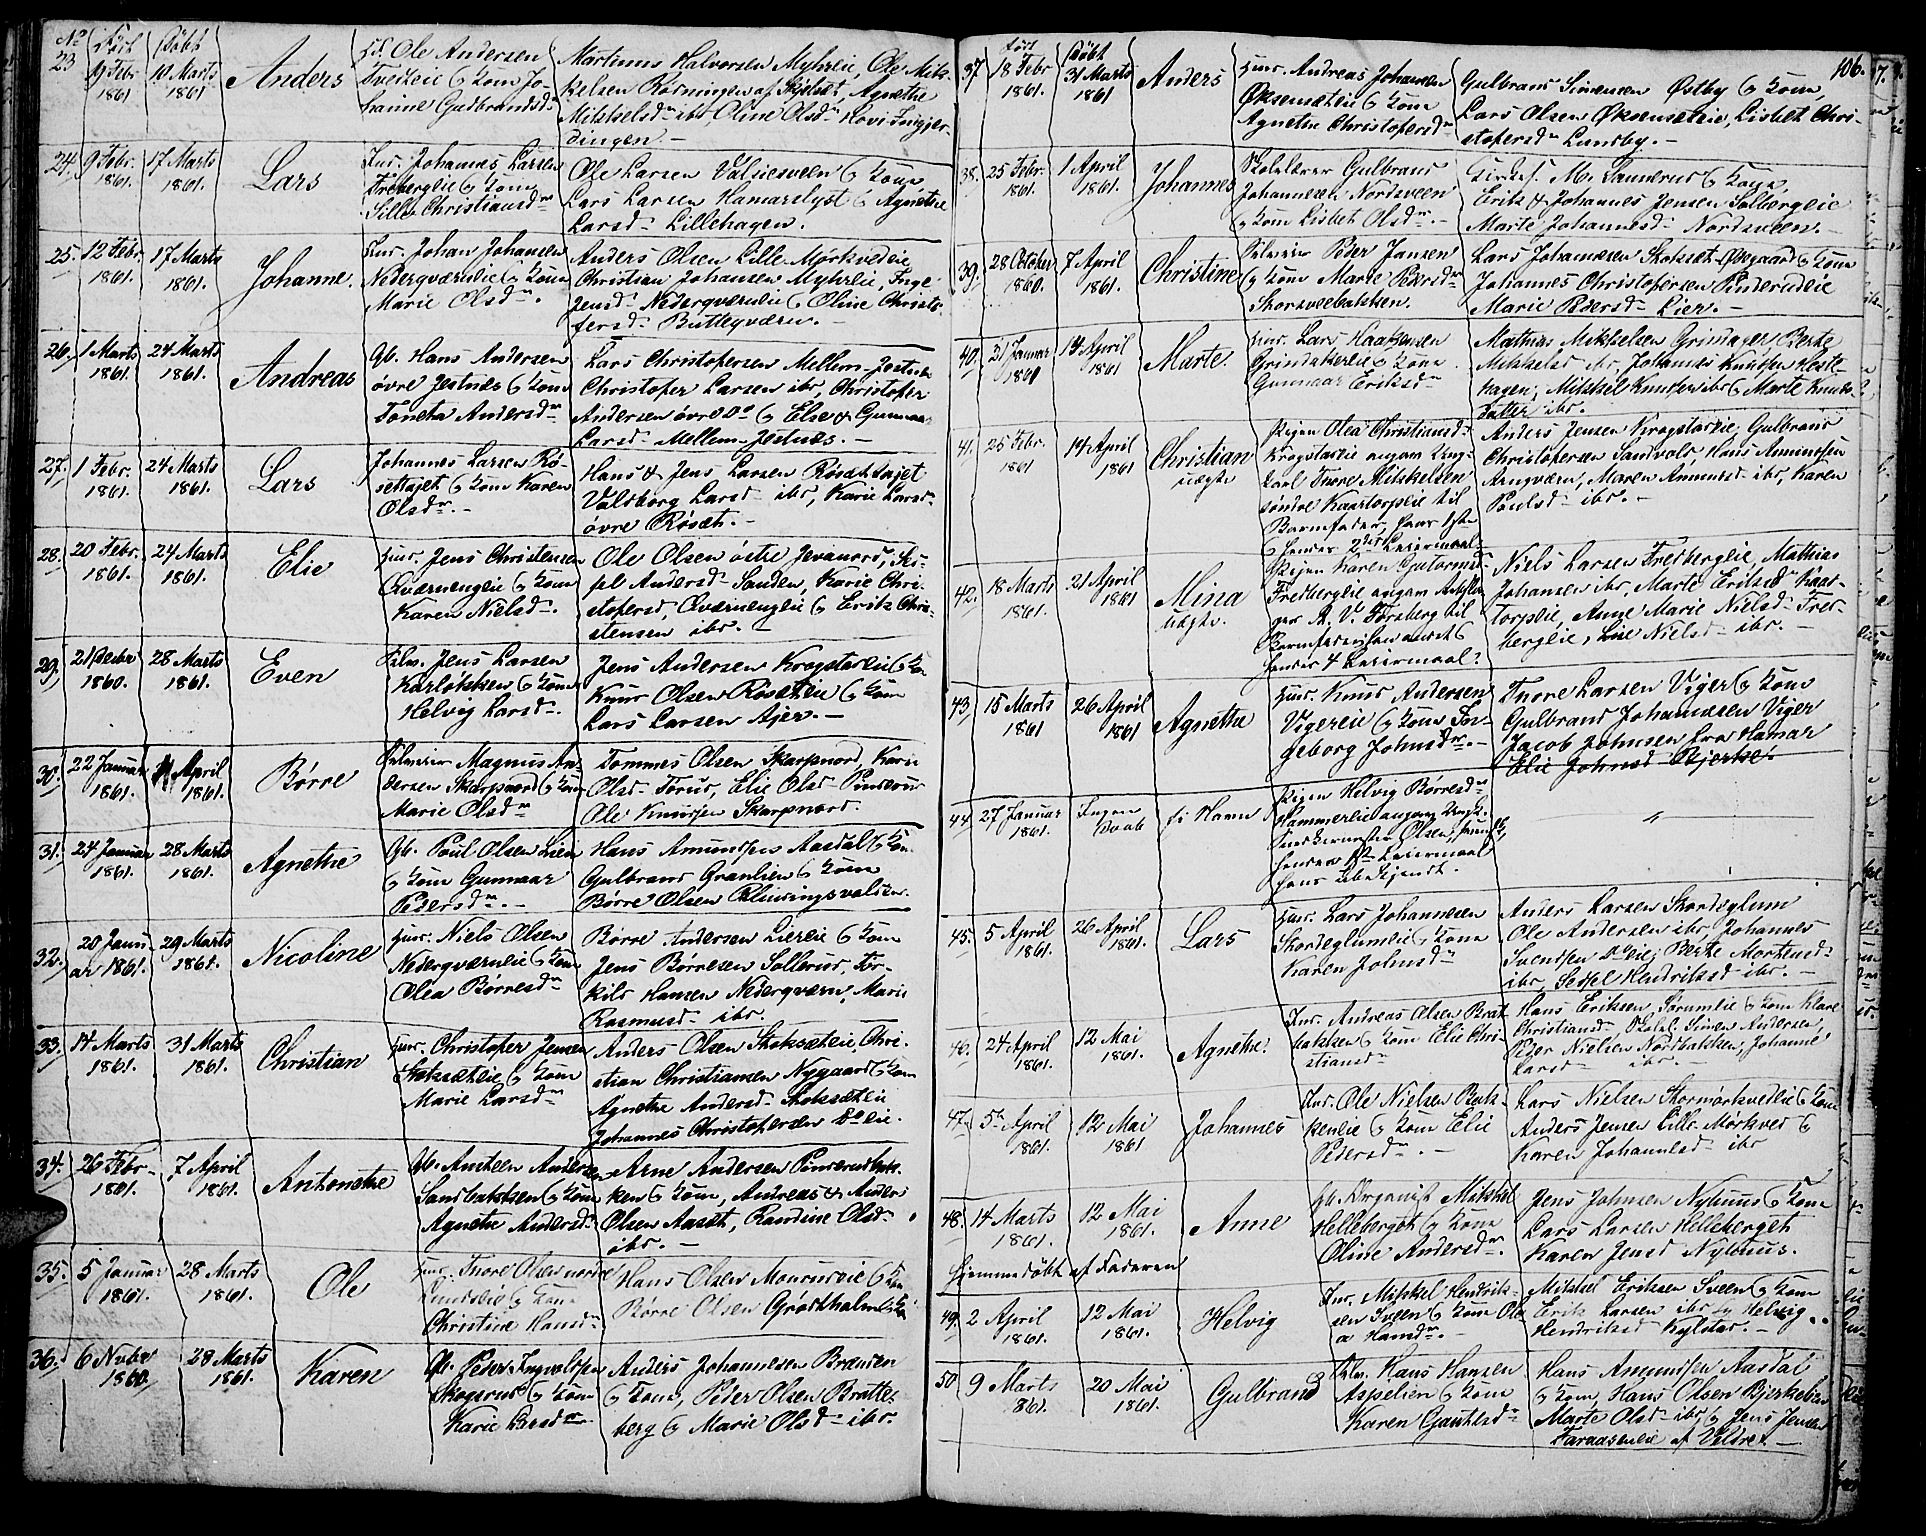 No Født Døbt
23 9 Febr 1861 10 Marts 1861 Anders
Ole Andersen
Tvedteie & Kone Jo-
hanne Gudbrandsd.
Martinus Halvorsen Myhreie, Ole Mik-
kelsen af Skjeset, Agnethe
Mikkelsd ibr, Oline Olsd
dingen.
24. 9 Febr. 1861. 17 Marts 1861. Lars
Inr. Johannes Larsen
Fredbergeie & Kone
Sille Christiansd.
Ole Larsen & Kone
Lars Larsen Hamarslyst & Agnethe
Larsd. Lillehagen.
25. 12 Febr. 1861. 17 Marts 1861. Johanne.
Huus. Johan Johansen
Nederqværneie & Kone
Marie Olsd.
Anders Olsen Lille Mørkvedeie
Christian Johansen Myhreie, Inge
Jensd. Nederqværneie & Oline Christo-
fersd. Butteqværn.
26. 1 Marts 1861. 24 Marts 1861. Andreas
Gb. Hans Andersen
øvre Jestnes & Kone
Toneta Andersd.
Lars Christophersen Mellem-Jestnes
Christopher Larsen ibr, Christopher
Andersen øvre Do & Else & Gunnaar
Larsd. Mellem-Jestnes.
27. 1 Febr. 1861. 24 Marts 1861. Lars
Johannes Larsen Rø-
settajet & Kone Karen
Olsd.
Hans & Jens Larsen Røsettajet
Valborg Larsd ibr, Karie Larsd.
øvre Røset.
28. 20 Febr. 1861. 24 Marts 1861. Elie
Huus. Jens Christensen
Qværnengeie & Kone
Karen Nielsd.
Ole Olsen østre Jevanord, Si-
sel Andersd. Sanden, Karie Chri-
stophersd. Qværnengeie & Erik Chri-
stensen ibr.
29. 21 Decbr 1860. 28 Marts 1861. Even
Jens Larsen
Karløkken & Kone
Helvig Larsd.
Jens Andersen Krogstadeie & Kone
Knud Olsen Røseteie & Kone
Lars Larsen Ajer.
30. 22 Januar 1861. April 1861. Børre
Magnus An-
dersen Skarpnord & Kone
Marie Olsd
Tommes Olsen Skarpnord, Karie
Olsd Torud, Elie Olsd. Pinderud
Ole Knudsen Skarpnord.
31. 24 Januar 1861. 28 Marts 1861. Agnethe
Gb. Poul Olsen Lien
& Kone Gunnaar
Pedersd.
Hans Amundsen Aasdal & Kone
Gulbrand Granlien & Kone
Børre Olsen
32. 20 Janu-
ar 1861. 29 Marts 1861. Nicoline
Huus. Niels Olsen
Nederqværneie & Kone
Olea Børresd.
Børre Andersen Liereie & Kone
Jens Børresen Sollerud, Tor-
kild Hansen Nederqværn, Marie
Rasmusd. ibr.
33. 14 Marts 1861. 31 Marts 1861. Christian
Huus. Christopher Jensen
Stokseteie & Kone
Marie Larsd.
Anders Olsen Stokseteie, Chri-
stian Christiansen Nygaard & Kone
Agnethe Andersd. Stokseteie
Johannes Christophersen Do eie.
34. 26 Febr. 1861. 7 April 1861. Antonethe
Gb. Amsteen Andersen
Sandbakken & Kone
Agnethe Andersd.
Arne Andersen Pinderudbak-
ken & Kone, Andreas & Anders
Olsen Aaset, Randine Olsd.
ibr.
35. 5 Januar 1861. 28 Marts 1861. Ole
Huus. Thore Olsen nordre
& Kone
Christine Hansd.
Hans Olsen Mourudeie & Kone
Børre Olsen Grødtholm & Kone
36. 6 Nvbr 1860 28 Marts 1861. Karen
Gb. Peder Ingvoldsen
Skogsrud & Kone
Karie Larsd.
Anders Johannesen Brænden
& Kone, Peder Olsen Bratte-
berg & Marie Olsd. ibr.
106.
Født Døbt
37. 18 Febr 1861. 31 Marts 1861 Anders
Huus. Andreas Johansen
Øksenseteie & Kone
Agnethe Christophersd.
Gulbrand Simensen Østby & Kone,
Lars Olsen Øksenseteie, Lisbet Chri-
stophersd. Lundby.
38. 25 Febr. 1861. 1 April 1861. Johannes
Skolelærer Gulbrand
Johannesen Nordsveen
& Kone Lisbet Olsd.
Kirkes. M. Sannerud & Kone,
Erik & Johannes Jensen Solbergeie
Marte Johannesd. Nordsveen.
39. 28 October 1860. 7 April 1861. Christine
Peder Jansen
& Kone Marie Pedersd.
Skorsveebakken.
Lars Johannesen Stokset-Øvegaard & Kone
Johannes Christophersen Pinderudeie
Marie Pedersd. Lier.
40. 31 Januar 1861 14 April 1861 Marte.
Huus. Lars Haakensen
Grindakereie & Kone
Gunnaar Eriksd.
Mathias Mikkelsen Grindager, Berte
Mikkelsd ibr, Johannes Knudsen Heste-
hagen, Mikkel Knudsen ibr & Marte Knuds-
datter ibr.
41. 25 Febr. 1861 14 April 1861 Christian
uægte
Pigen Olea Christiansd.
Krogstadeie angav Ung-
karl Thore Mikkelsen
søndre Kaatorpeie til
Barnefader, hans 1ste
& hendes 2det Leiermaal.
Anders Jensen Krogstadeie, Gulbrand
Christophersen Sandvold Hans Amundsen
Arnqværn, Maren Amundsd. ibr, Karen
Poulsd. ibr.
42. 18 Marts 1861. 21 April 1861 Mina
uægte.
Pigen Karen Gutormsd.
Fredbergeie angav
R. V. Forsberg til
Barnefader
hendes 4 Leiermaal.
Niels Larsen Fredbergeie, Mathias
Johansen ibr, Marte Eriksd. Kaa-
torpeie, Anne Marie Nielsd. Fred-
bergeie, Lise Nielsd. ibr.
43. 15 Marts 1861 26 April 1861 Agnethe
Huus. Knud Andersen
Vigereie & Kone In-
geborg Johnsd.
Thore Larsen Viger & Kone
Gulbrand Johannesen Viger
Jacob Johnsen fra Hamar
Elie Johnsd. Bjerke.
44. 27 Januar 1861. Ingen Daab fi Havn
Pigen Helvig Børresd.
Hammereie angav Ungk.
Olsen,
hendes Leiermaal
hans ubekjendt.
"
45. 5 April 1861. 26 April 1861. Lars
Huus. Lars Johannesen
Skordeglumeie & Kone
Karen Johnsd.
Anders Larsen Skordeglum
Ole Andersen ibr, Johannes
Svendsen Do eie, Berte Mortensd.
ibr, Sedsel Hendriksd ibr.
46. 24 April 1861. 12 Mai 1861. Agnethe.
Inr. Andreas Olsen Brat-
bakken & Kone Elie Chri-
stiansd.
Hans Eriksen Sørumeie & Kone Klare
Christiansd. Skolel. Simen Andersen,
Peder Nielsen Nordbakken, Johanne
Larsd. ibr.
47. 5te April 1861. 12 Mai 1861 Johannes
Inr. Ole Nielsen Bak-
keneie & Kone Elie
Pedersd.
Lars Nielsen Stormørkvedeie & Kone
Anders Jensen Lille Mørkved &
Karen Johannesd. ibr
48. 14 Marts 1861. 12 Mai 1861. Anne
Gb. Organist Mikkel
Helleberget & Kone
Oline Andersd.
Jens Johnsen Nyhuus & Kone
Lars Larsen Helleberget
Karen Jensd Nyhuus.
hjemmedøbt af Faderen
49. 2 April 1861. 12 Mai 1861. Helvig
Inr. Mikkel Hendrik-
sen Sveen & Kone Ole-
a Hansd.
Mikkel Eriksen Sveen & Kone
Erik Larsen ibr & Helvig
Hendriksd Kylstad.
50 9 Marts 1861. 20 Mai 1861. Gulbrand
Hans Hansen
Aspelien & Kone
Karen Gautesd.
Hans Amundsen Aasdal
& Kone, Hans Olsen Bjerkelien
Marte Olsd. ibr, & Jens Jensen
Faraaseneie af Veldre.